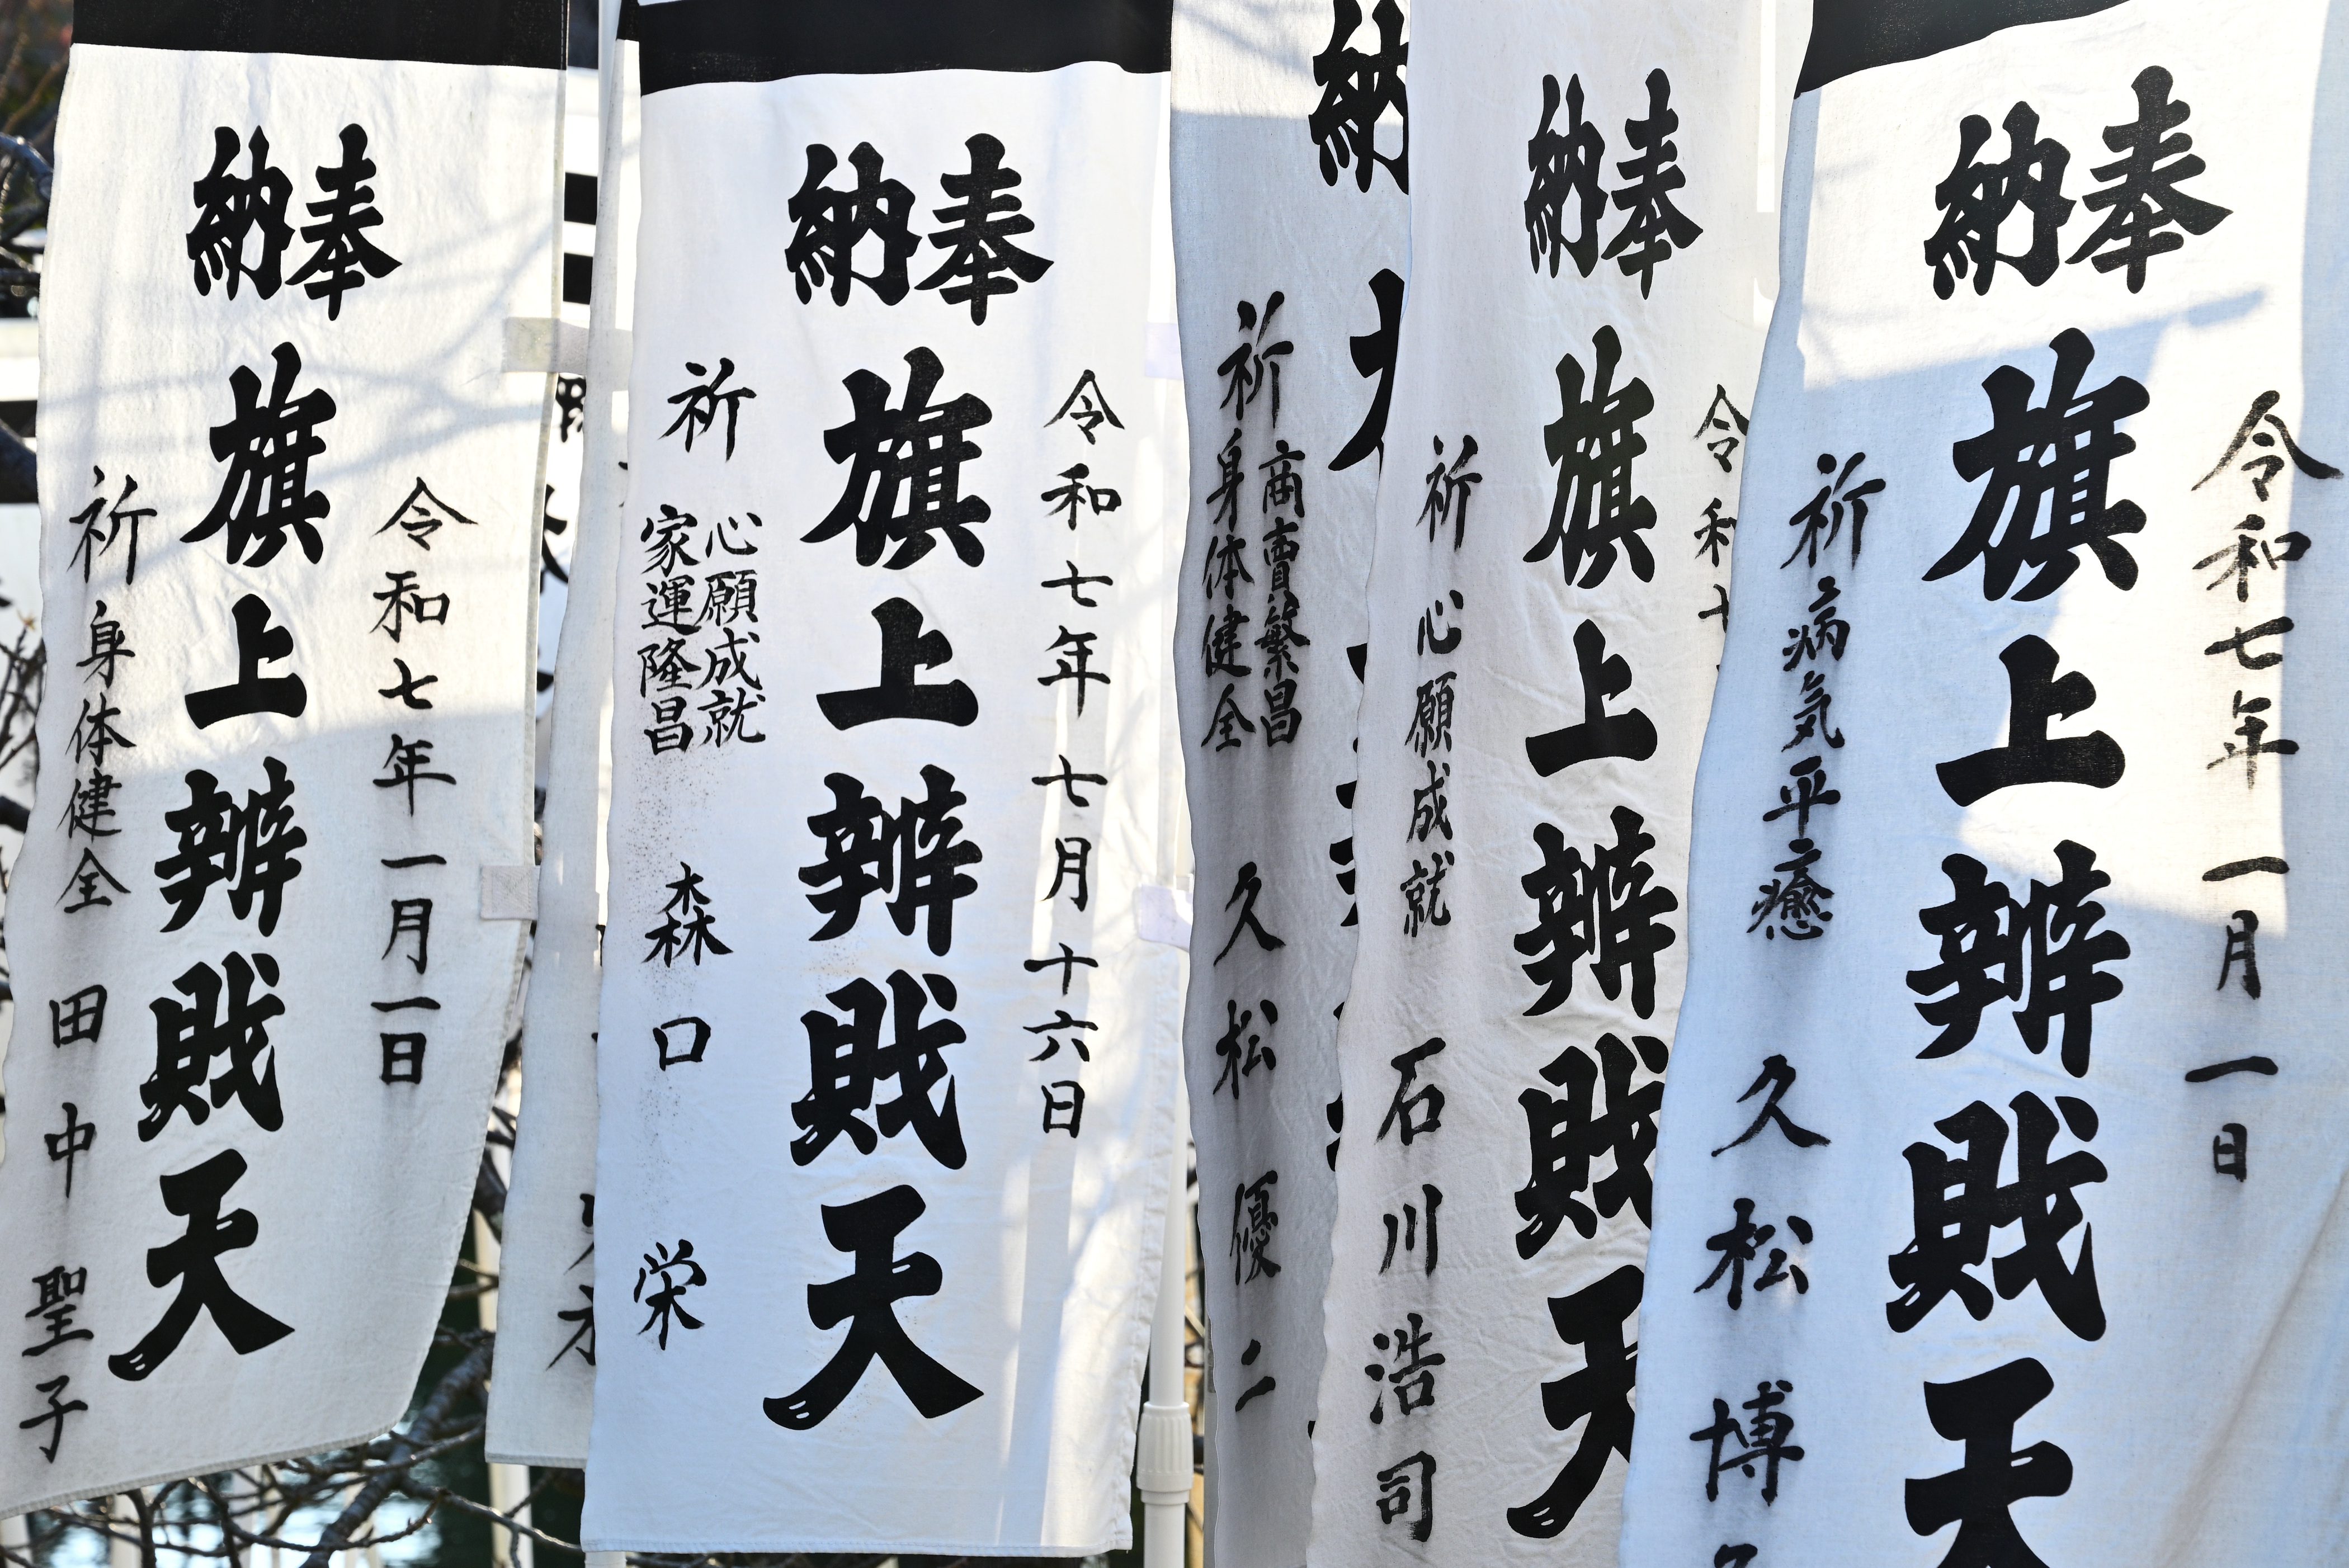 奉納
令和七年一月一日
旗上辨財天
祈病気平癒 久松博
奉納
令和七
旗上辨財天
祈心願成就 石川浩司
納
祈 商賣繁昌
身体健全
久松優二
奉納
令和七年七月十六日
旗上辨財天
祈 心願成就
家運隆昌
森口栄
奉納
令和七年一月一日
旗上辨財天
祈身体健全 田中聖子